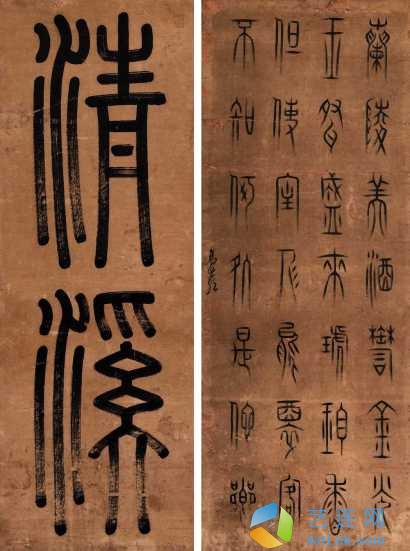 清溪
蘭陵美酒鬱金光
玉椀盛來琥珀香
但使主人能醉客
不知何處是他鄉